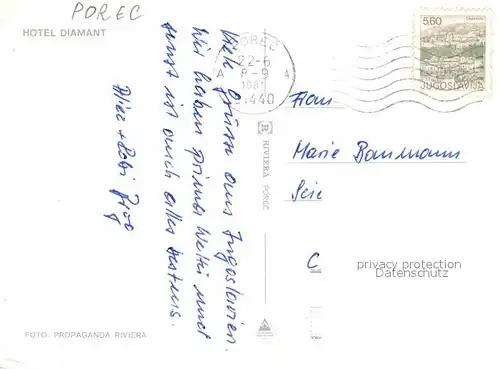 POREC
HOTEL DIAMANT
Viele Grüsse aus Jugoslavien.
Wir haben prima Wetter und
sonst ist auch alles bestens.
FOTO: PROPAGANDA RIVIERA
RIVIERA POREČ
POREČ
22-6
A 8-9 4
51440
5.60
JUGOSLAVIJA
Frau
Marie Baumann
privacy protection
Datenschutz